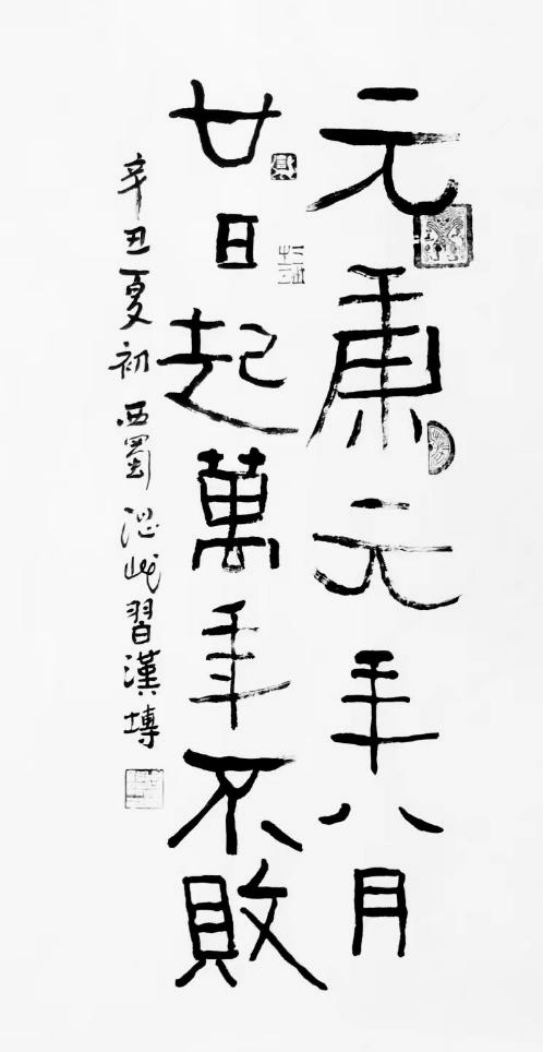 元康元年八月
廿日起萬年不敗
辛丑夏初西蜀習漢塼